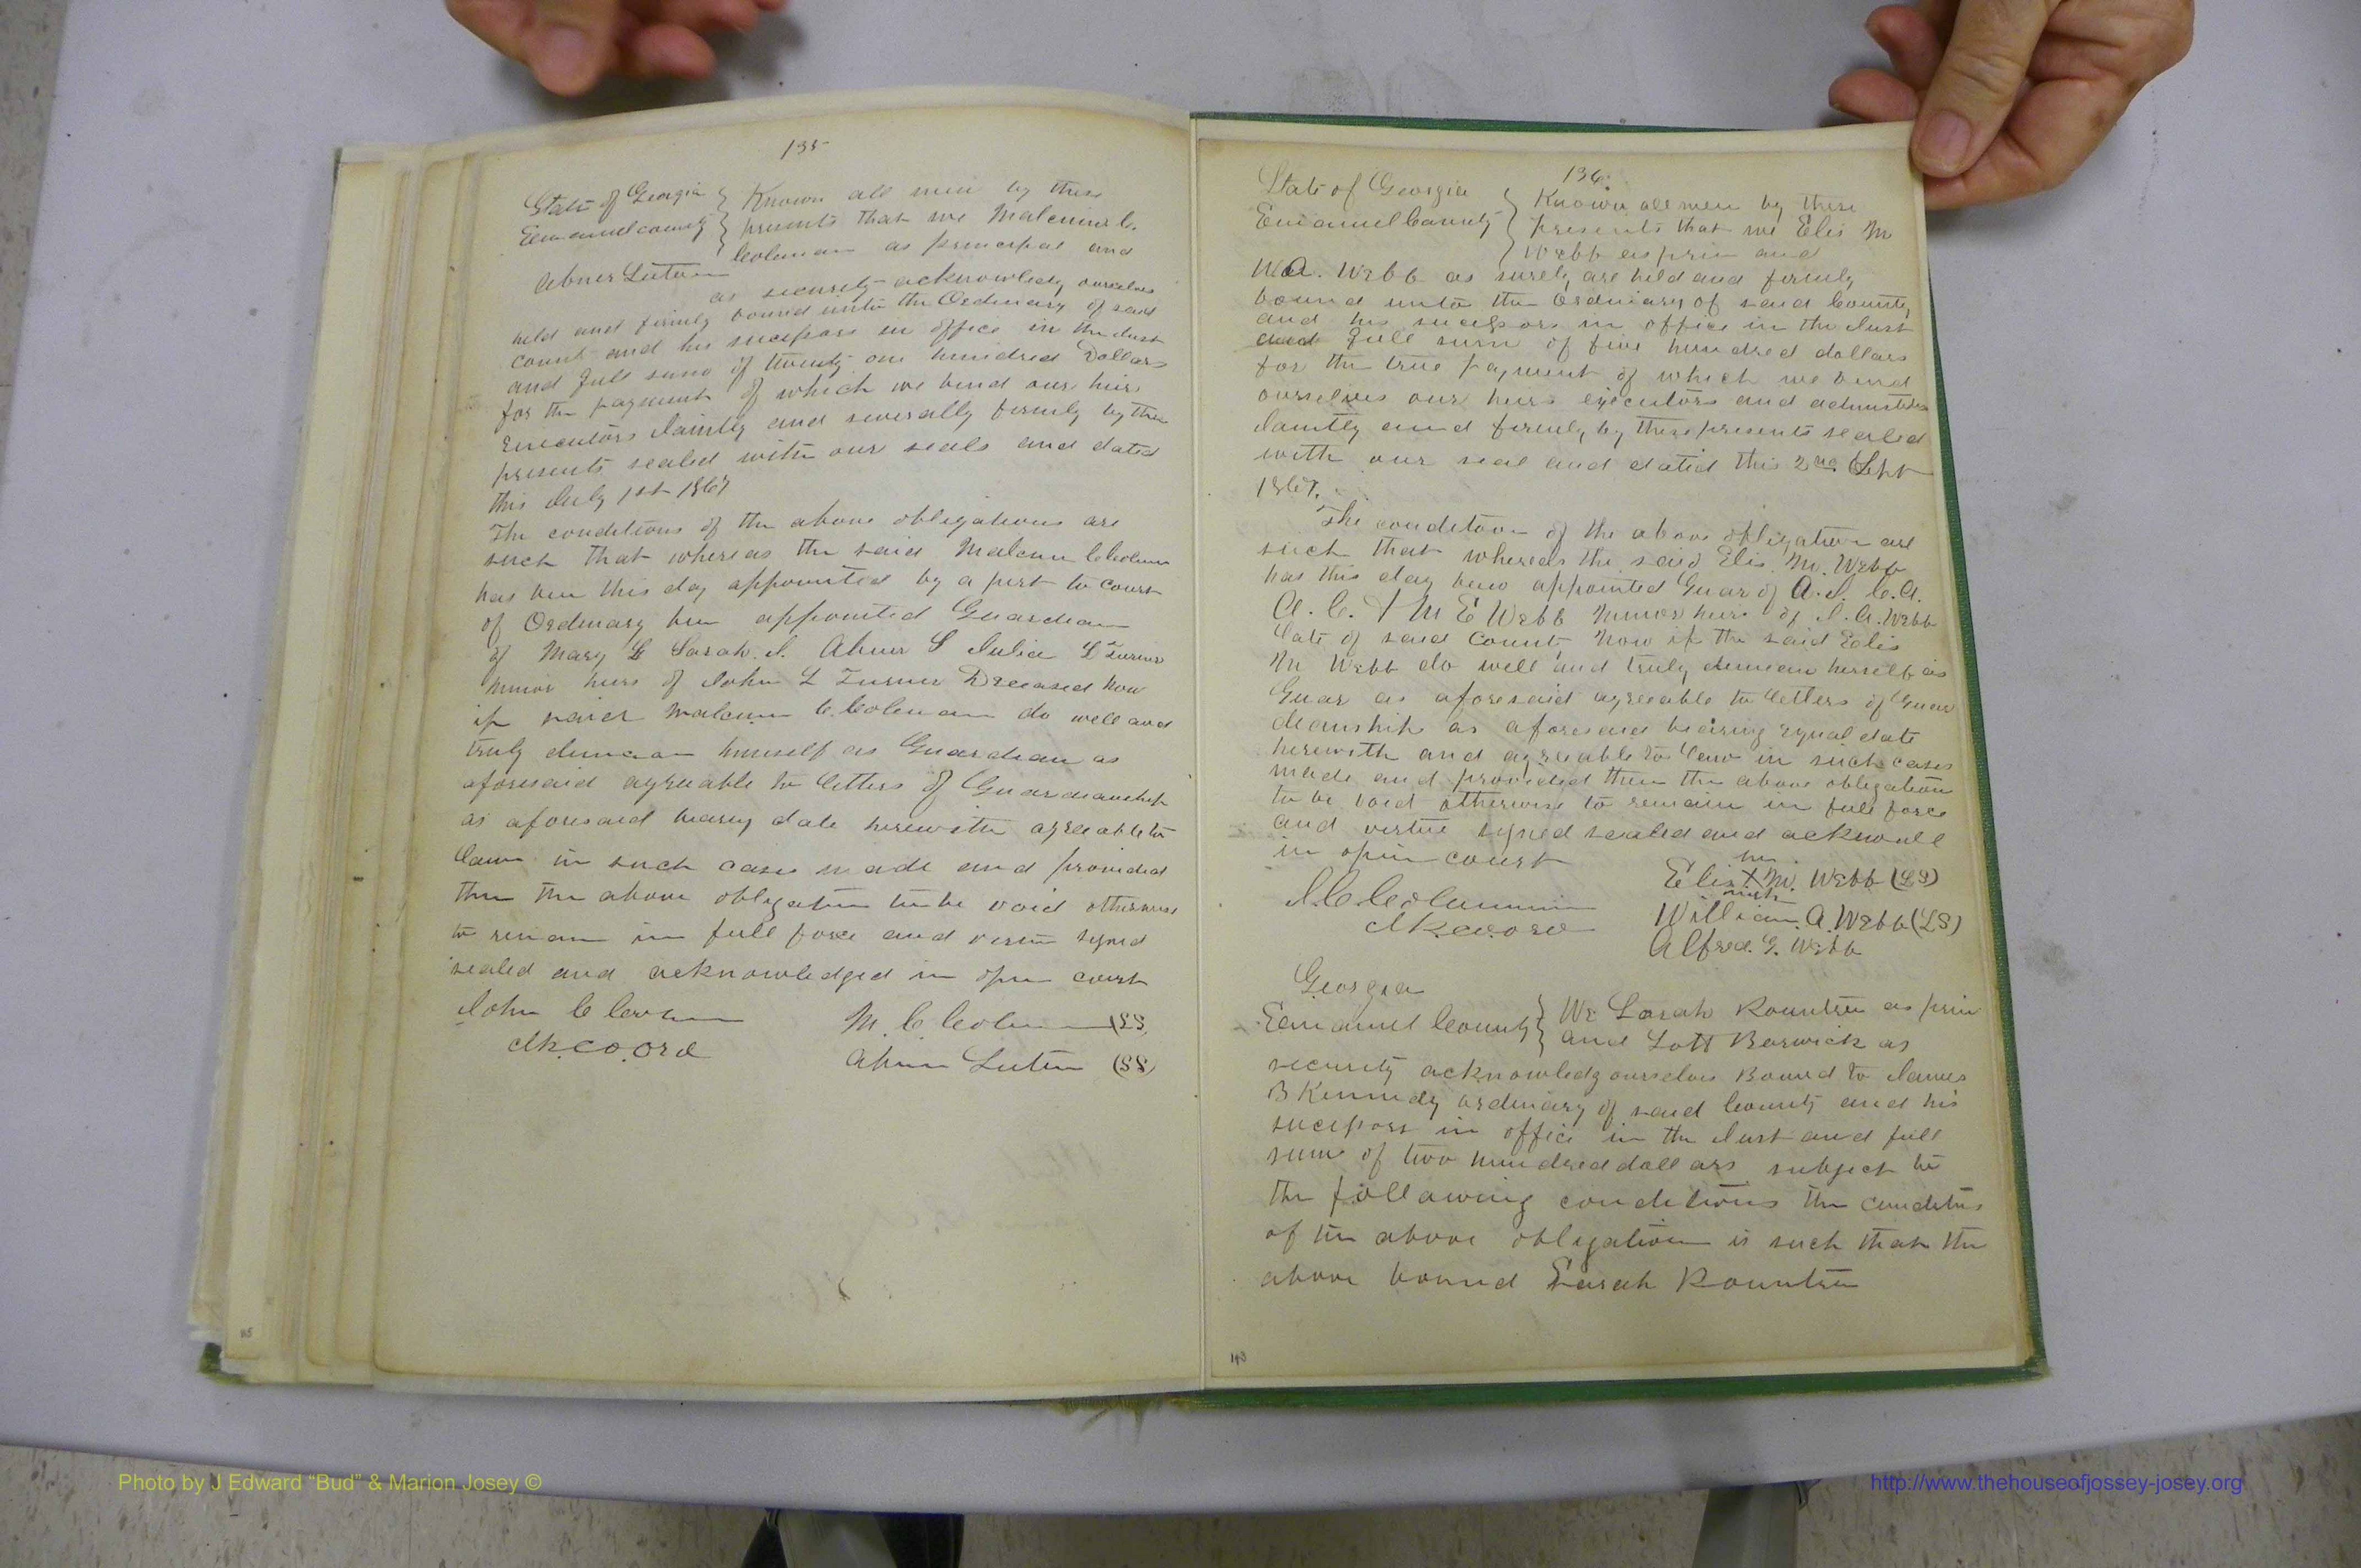 135
State of Georgia } Known all men by these
Emanuel county } presents that we Malcum C.
Coleman as principal and
Abner Luten
as security acknowledg ourselves
held and firmly bound unto the Ordinary of said
count and his sucessors in office in the Just
and full sum of twenty one hundred Dollars
for the payment of which we bind our heirs
Executors Jaintly and severally firmly by these
presents sealed with our seals and dated
this July 1st 1867
The conditions of the above obligations are
such that whereas the said Malcum C Colemn
has ben this day appointed by a pert to court
of Ordinary ben appointed Guardian
of Mary L Sarah. J. Abner S Julia L Turner
minor heirs of John L Turner Deceased now
if Malcum C. Coleman do well and
truly demean himself as Guardian as
aforesaid agreable to letters of Guardianship
as aforesaid bearing date herewith agreeable to
Law in such cases made and provided
then the above obligation to be void otherwise
to remain in full force and virtue signed
sealed and acknowledged in open court
John C
M. C Coleman (LS,
Abner Luten (SS)
136.
State of Georgia } Known all men by these
Emanuel County } presents that we Elis M
Webb as prin and
W.A. Webb as surely are held and firmly
bound unto the Ordinary of said County
and his sucessors in office in the Just
and full sum of five hundred dollars
for the true payment of which we bind
ourselves our heirs executors and
Jaintly and firmly by these presents sealed
with our seal and dated this 2nd Sept
1867.
The condetion of the above obligation are
such that whereas the said Elis. M. Webb
has this day been appointed Guar of A. J. C. A.
A. C. & M E Webb Minor heirs of J. A. Webb
late of said county Now if the said Elis
M Webb do well and truly demean herself as
Guar as aforesaid agreeable to letters of Guar
deanship as aforesaid bearing equal date
herewith and agreeable to law in such cases
made and provided then the above obligation
to be void otherwise to remain in full force
and virtue signed sealed and acknowll
in open court
her
Elis X M. Webb (LS)
mark
William. A. Webb (LS)
Alfred. G. Webb
Georgia
Emanuel County } We Sarah Rountree as prin
and Lott Barwick as
security acknowledg ourselves Bound to James
B Kennedy ordinary of said County and his
sucessors in office in the Just and full
sum of two hundred dollars subject to
the following conditions the conditins
of the above obligation is such that the
above bound Sarah Rountree
115
Photo by J Edward “Bud” & Marion Josey ©
http://www.thehouseofjossey-josey.org